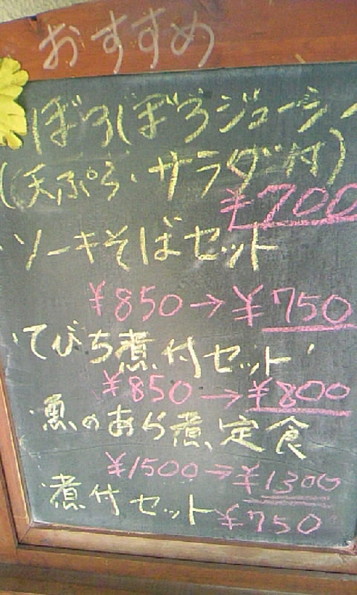 おすすめ
・ぼろぼろジューシー
(天ぷら・サラダ付)
¥700
・ソーキそばセット
¥850→¥750
・てびち煮付セット
¥850→¥800
魚のあら煮定食
¥1500→¥1300
煮付セット¥750